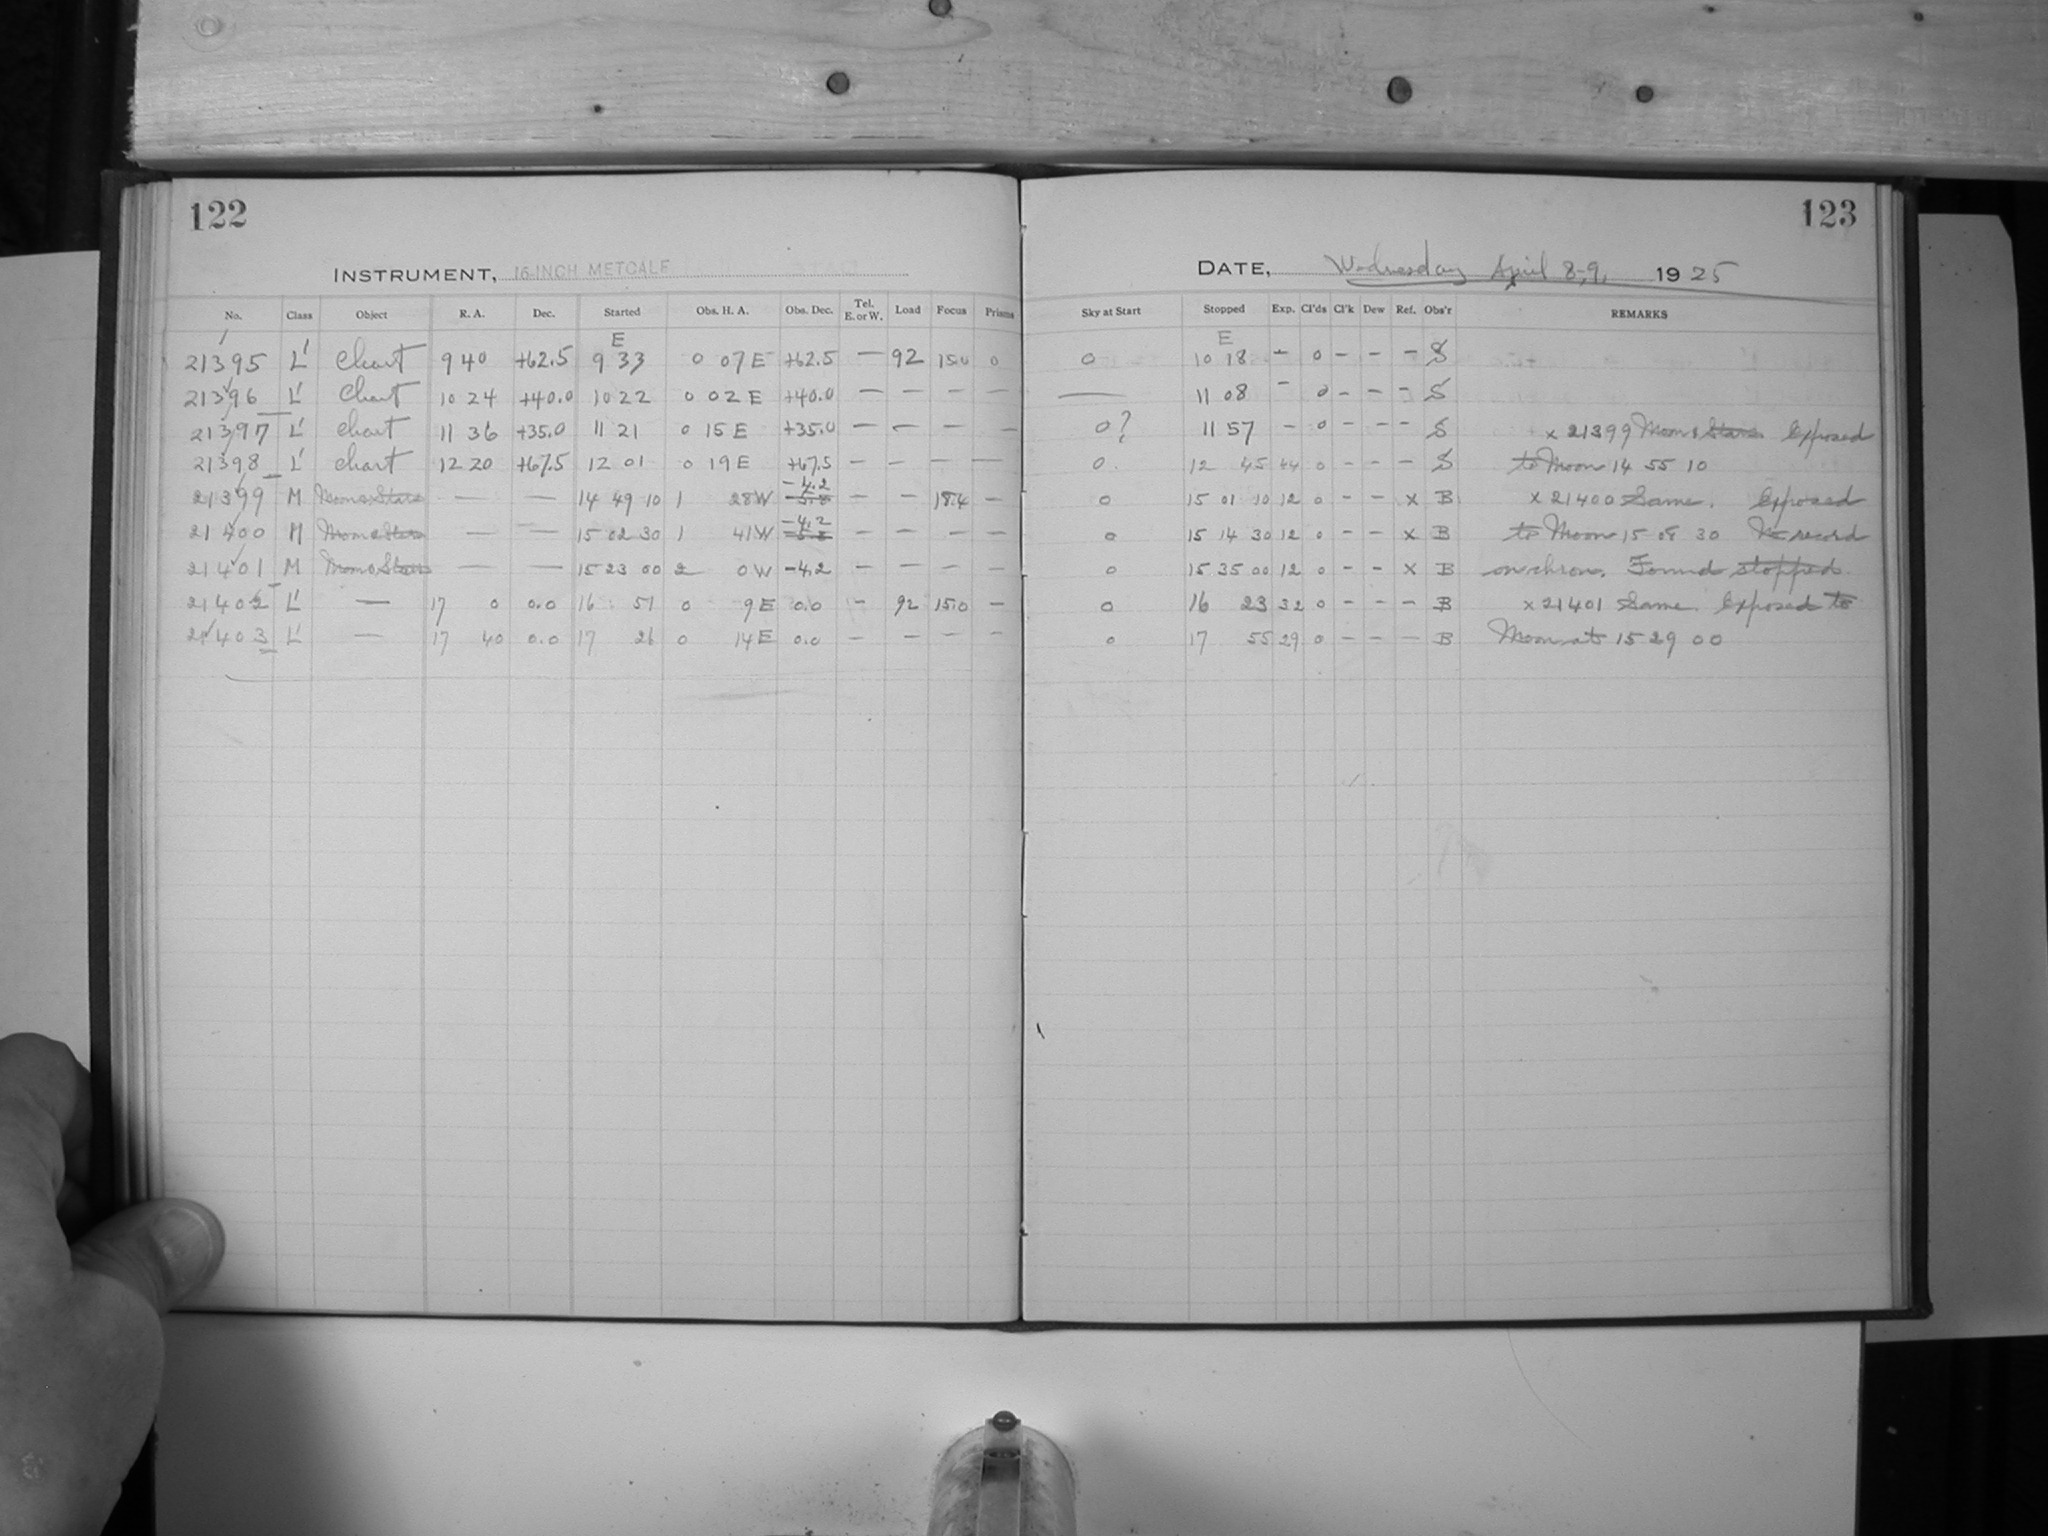 122
INSTRUMENT, 16-INCH METCALF
No. Class Object R. A. Dec. Started Obs. H. A. Obs. Dec. Tel. E. or W. Load Focus Prisms
E
21395 L' Chart 9 40 +62.5 9 33 0 07 E +62.5 — 92 15.0 0
21396 L' Chart 10 24 +40.0 10 22 0 02 E +40.0 — — — —
21397 L' Chart 11 36 +35.0 11 21 0 15 E +35.0 — — — —
21398 L' Chart 12 20 +67.5 12 01 0 19 E +67.5 — — — —
-4.2
21399 M Moon & Stars — — 14 49 10 1 28 W — — 18.4 —
-4.2
21400 M Moon & Stars — — 15 02 30 1 41 W — — — —
21401 M Moon & Stars — — 15 23 00 2 0 W -4.2 — — — —
21402 L' — 17 0 0.0 16 51 0 9 E 0.0 — 92 15.0 —
21403 L' — 17 40 0.0 17 26 0 14 E 0.0 — — — —
123
DATE, Wednesday April 8-9, 1925
Sky at Start Stopped Exp. Cl'ds Cl'k Dew Ref. Obs'r REMARKS
E
0 10 18 — 0 — — — S
— 11 08 — 0 — — — S
0? 11 57 — 0 — — — S x 21399 Moon & Stars Exposed
0. 12 45 44 0 — — — S to Moon 14 55 10
0 15 01 10 12 0 — — x B x 21400 Same. Exposed
0 15 14 30 12 0 — — x B to Moon 15 08 30 No record
0 15 35 00 12 0 — — x B on chron. Found stopped.
0 16 23 32 0 — — — B x 21401 Same. Exposed to
0 17 55 29 0 — — — B Moon at 15 29 00